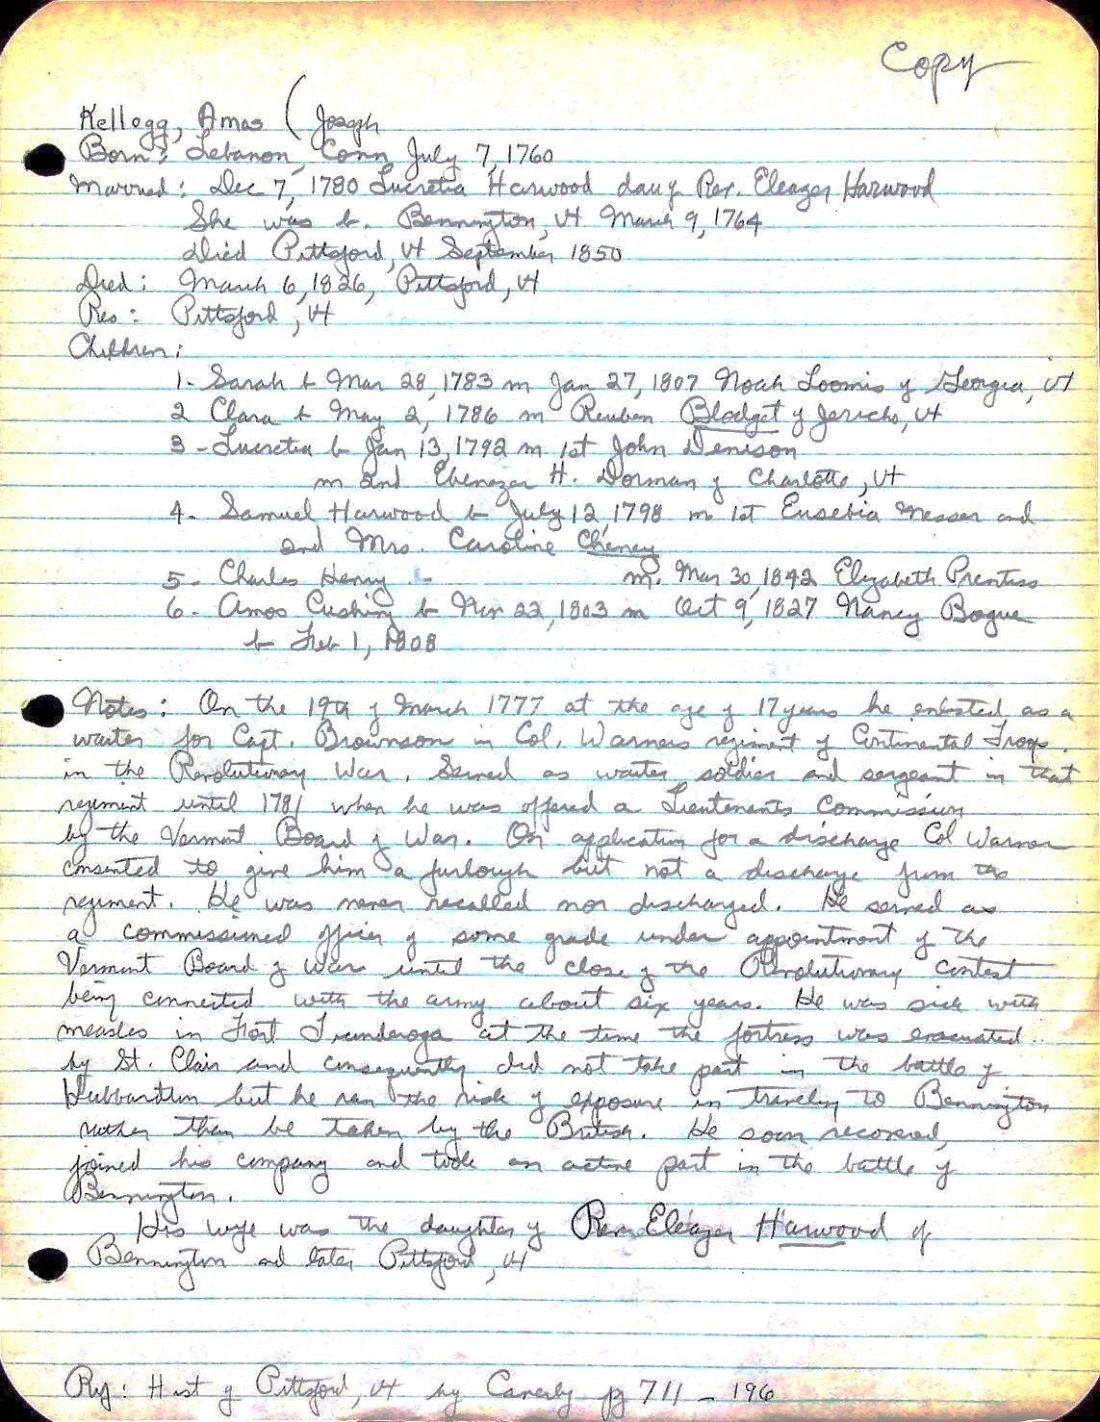 Copy
Kellogg, Amos (Joseph
Born: Lebanon, Conn, July 7, 1760
Married: Dec 7, 1780 Lucretia Harwood dau of Rev. Eleazer Harwood
She was b. Bennington, Vt March 9, 1764
Died Pittsford, Vt September 1850
Died: March 6, 1826, Pittsford, Vt
Res: Pittsford, Vt
Children:
1- Sarah b Mar 28, 1783 m Jan 27, 1807 Noah Loomis of Georgia, Vt
2 Clara b May 2, 1786 m Reuben Blodget of Jericho, Vt
3 - Lucretia b Jan 13, 1792 m 1st John Denison
m 2nd Ebenezer H. Dorman of Charlotte, Vt
4- Samuel Harwood b July 12, 1798 m 1st Eusebia Messer and
2nd Mrs. Caroline Cheney
5- Charles Henry b m. Mar 30, 1842 Elizabeth Prentiss
6- Amos Cushing b Nov 22, 1803 m Oct 9, 1827 Nancy Bogue
b Feb 1, 1808
Notes: On the 19th of March 1777 at the age of 17 years he enlisted as a
waiter for Capt. Brownson in Col. Warners regiment of Continental Troops
in the Revolutionary War. Served as waiter, soldier and sergeant in that
regiment until 1781 when he was offered a Lieutenants Commission
by the Vermont Board of War. On application for a discharge Col Warner
consented to give him a furlough but not a discharge from the
regiment. He was never recalled nor discharged. He served as
a commissioned officer of some grade under appointment of the
Vermont Board of War until the close of the Revolutionary Contest
being connected with the army about six years. He was sick with
measles in Fort Ticonderoga at the time the fortress was evacuated
by St. Clair and consequently did not take part in the battle of
Hubbardton but he ran the risk of exposure in traveling to Bennington
rather than be taken by the British. He soon recovered,
joined his company and took an active part in the battle of
Bennington.
His wife was the daughter of Rev. Eleazer Harwood of
Bennington and later Pittsford, Vt
Ref: Hist of Pittsford, Vt by Caverly pg 711 - 196